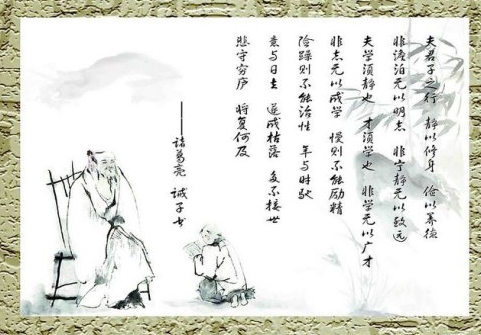 夫君子之行 静以修身 俭以养德
非澹泊无以明志 非宁静无以致远
夫学须静也 才须学也 非学无以广才
非志无以成学 慢则不能励精
险躁则不能治性 年与时驶
意与日去 遂成枯落 多不接世
悲守穷庐 将复何及
——诸葛亮 诫子书